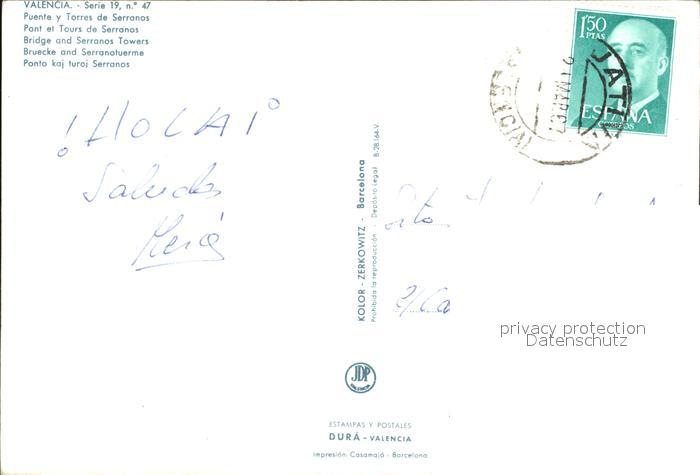 VALENCIA. - Serie 19, n.° 47
Puente y Torres de Serranos
Pont et Tours de Serranos
Bridge and Serranos Towers
Bruecke and Serranotuerme
Ponto kaj turoj Serranos
¡HOLA!
Saludos
KOLOR - ZERKOWITZ - Barcelona
Prohibida la reproducción - Depósito Legal B-28.164-V
1'50
PTAS
ESPAÑA
CORREOS
privacy protection
Datenschutz
JDP
VALENCIA
ESTAMPAS Y POSTALES
DURÁ - VALENCIA
Impresión: Casamajó - Barcelona